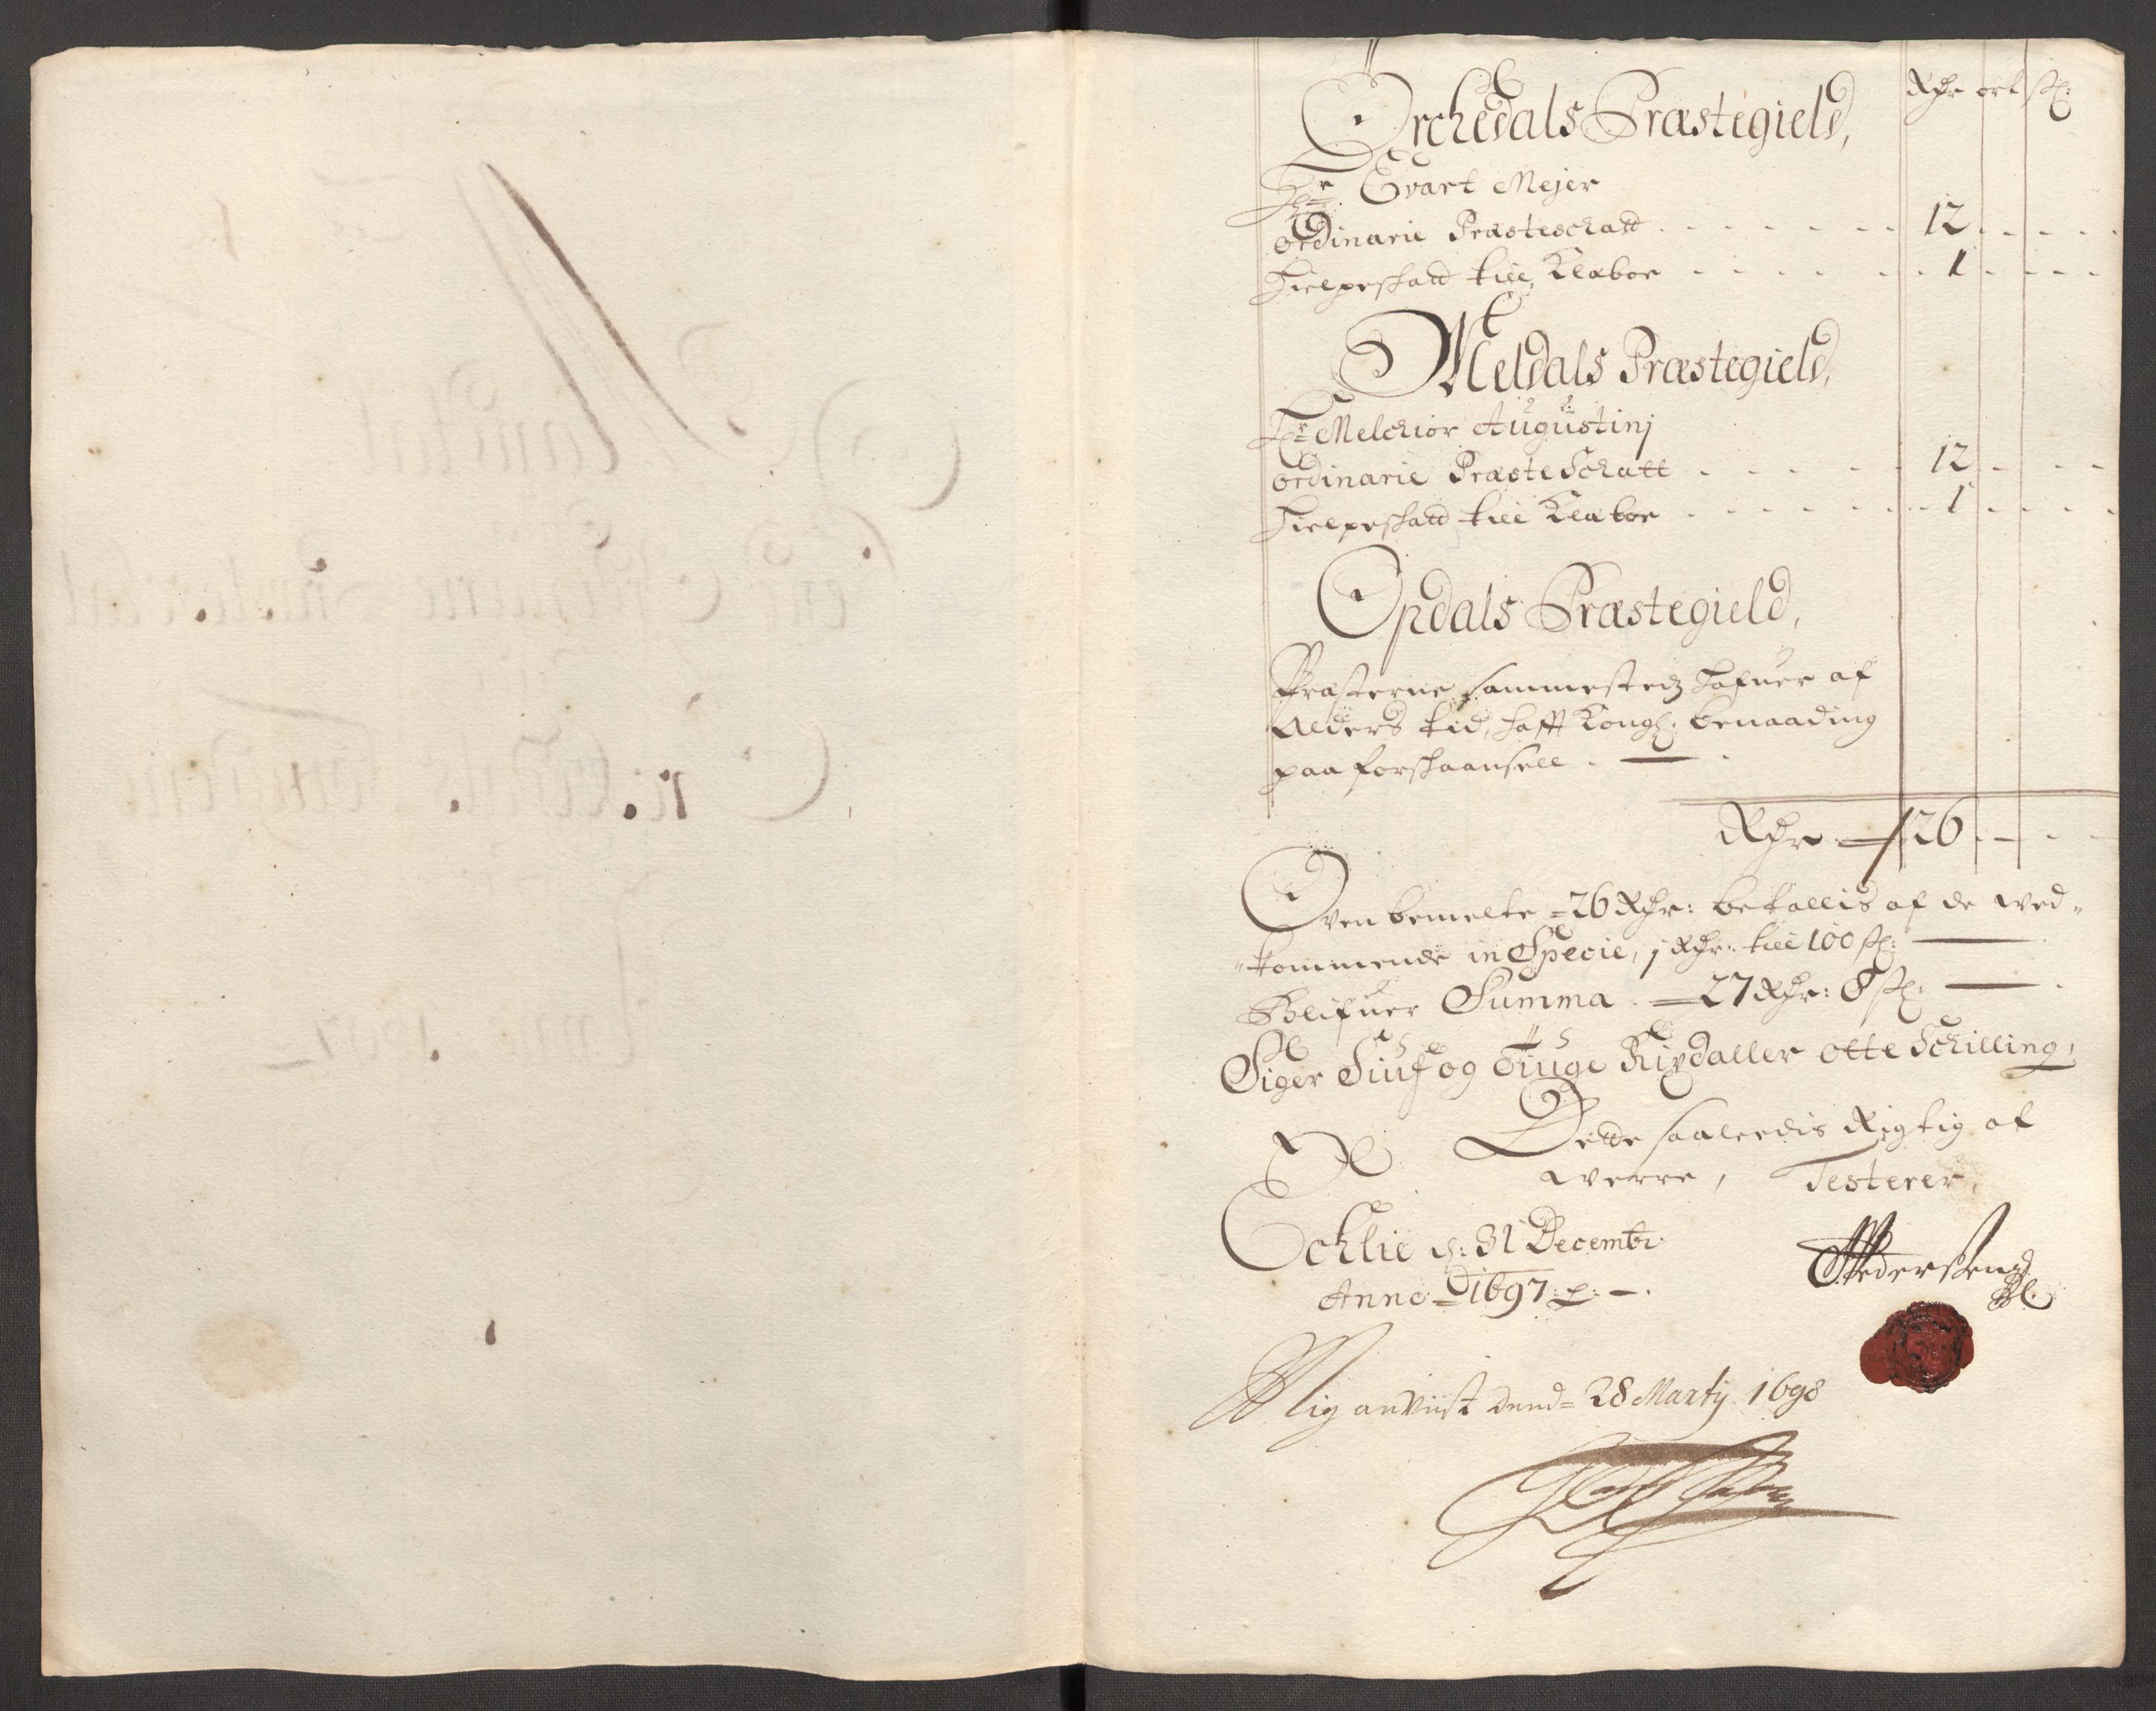 Rdr ort ß:
Orchedals Præstegield,
Hr: Evart Mejer
ordinarie Præsteschatt . . . . . . 12 . . . .
Hielpeschatt till Klæboe . . . . . . 1 . . . .
Meldals Præstegield,
Hr Melchior Augustinj
ordinarie Præste Schatt . . . . . 12 . . .
Hielpeschatt till Klæboe . . . . . . 1 . . . .
Opdals Præstegield,
Præsterne sammestedz hafuer af
Alders tid, hafft Kongl: benaading
paa forskaansell . — .
Rdr — 26 . — . —
Oven bemelte = 26 Rdr: betallis af de wed-
kommende in Specie, 1 Rdr: till 100 ß: —
Blifuer Summa . = 27 Rdr: 8 ß: — .
Siger Siuf og Tiuge Rixdaller otte Schilling,
Dette saaledis Rigtig at
werre, Testerer,
Echlie d: 31 Decembr:
Anno = 1697: p: — .
Pedersen
Mig anviist dend= 28 Martij 1698